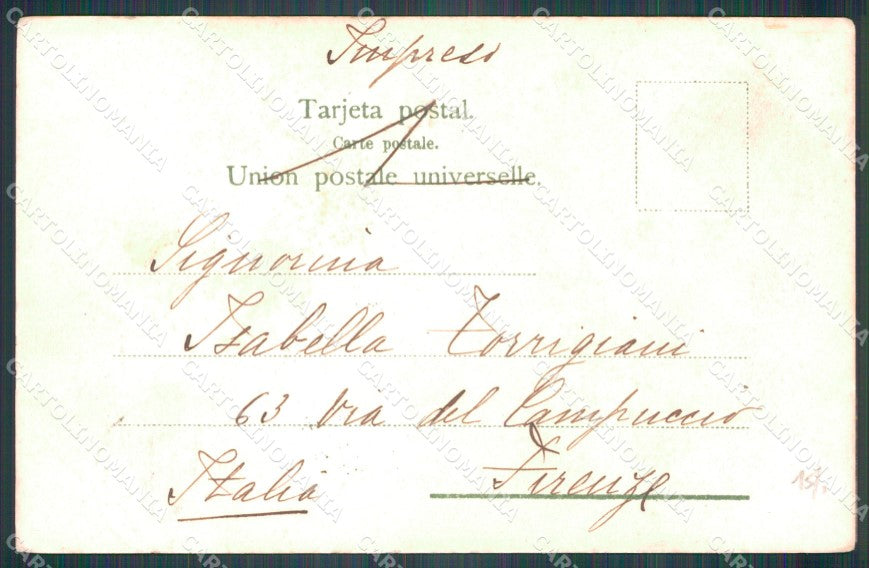 Impreso
Tarjeta postal.
Carte postale.
Union postale universelle.
Signorina
Isabella Torrigiani
63 Via del Campuccio
Firenze
Italia
CARTOLINOMANIA